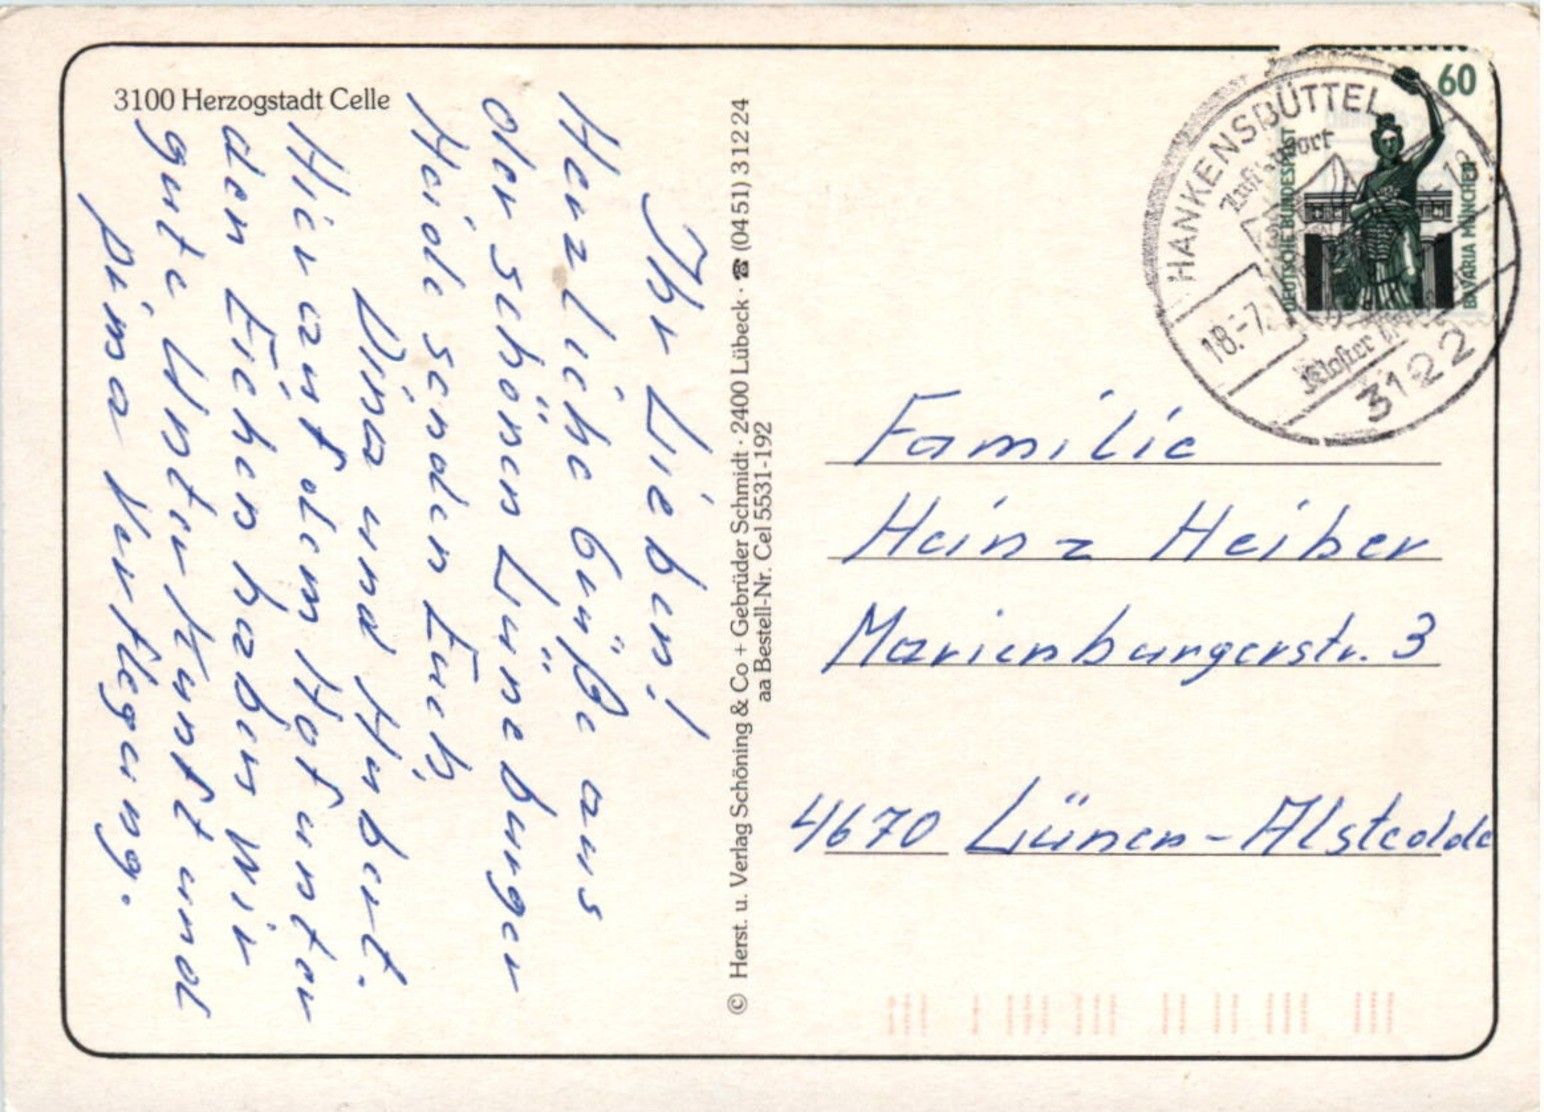 3100 Herzogstadt Celle
Ihr Lieben!
Herzliche Grüße aus
der schönen Lüneburger
Heide senden Euch
Dina und Hubert.
Hier auf dem Hof unter
den Eichen haben wir
gute Unterkunft und
pima Verflegung.
© Herst. u. Verlag Schöning & Co + Gebrüder Schmidt · 2400 Lübeck · ☎ (04 51) 3 12 24
aa Bestell-Nr. Cel 5531-192
60
DEUTSCHE BUNDESPOST
BAVARIA MÜNCHEN
HANKENSBÜTTEL
Luftkurort
18.-7.
-18
Kloster
3122
Familie
Heinz Heiber
Marienburgerstr. 3
4670 Lünen-Alstedde